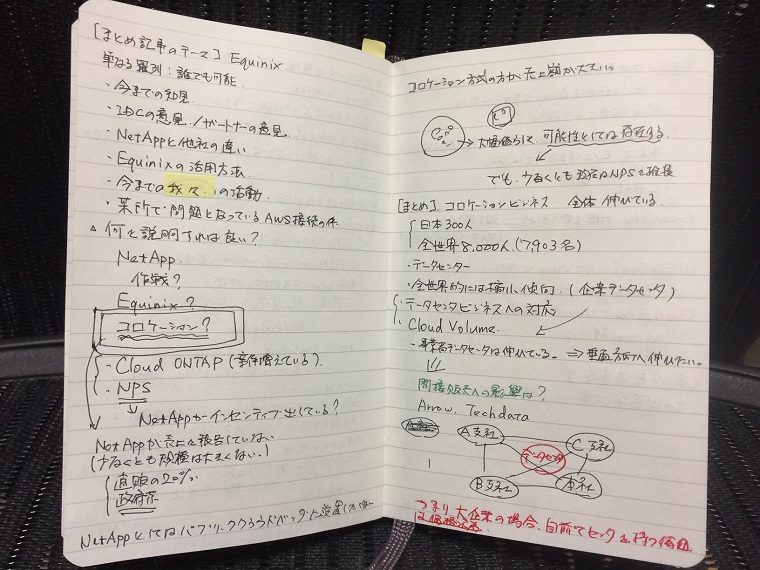 [まとめ記事のテーマ] Equinix
単なる羅列:誰でも可能
・今までの知見
・IDCの意見/パートナーの意見
・NetAppと他社の違い
・Equinixの活用方法
・今までの我々の活動
・某所で問題となっているAWS接続の件
何を説明すれば良い?
NetApp
作戦?
Equinix?
コロケーション?
・Cloud ONTAP (案件増えている)
・NPS
NetAppがインセンティブ出している?
NetAppが売上を報告していない
(少なくとも規模は大きくない。)
直販の20%
政府系
NetAppとしてはパブリッククラウド
コロケーション方式の方が売上額が大きい。
大幅値引して、可能性としては存在する
でも、少なくとも現在はNPSを推奨
[まとめ] コロケーションビジネス 全体 伸びている。
日本300人
全世界8,000人(7903名)
・データセンター
・全世界的には縮小傾向。(企業データセンタ)
・データセンタビジネスへの対応
・Cloud Volume.
・事業者データセンタは伸びている。⇒垂直方向へ伸びたい。
間接販売への影響は?
Arrow, Techdata
A支社
C支社
データセンタ
B支社
本社
つまり大企業の場合、自前でセンタを持つ
は